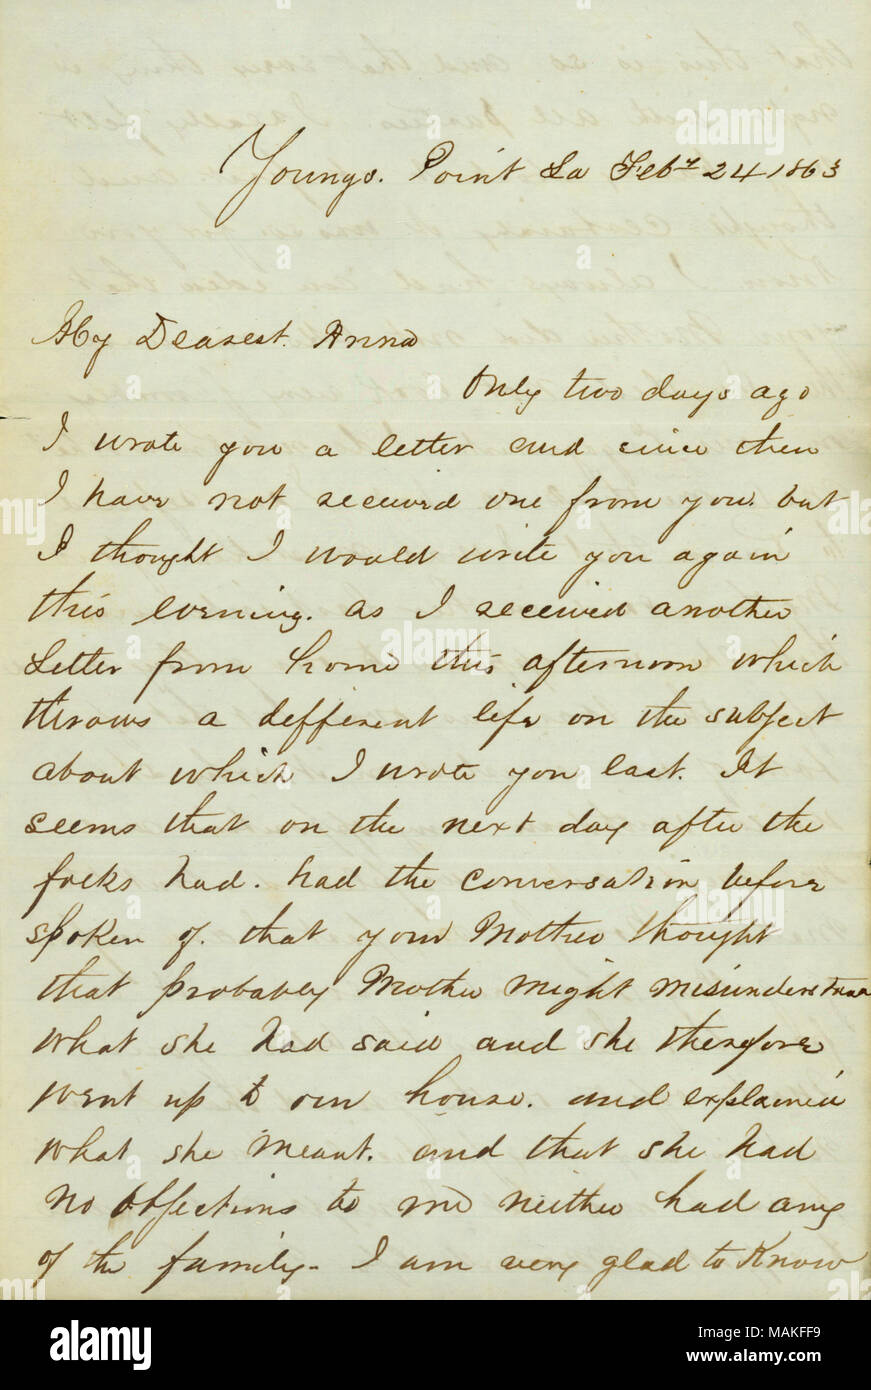 Youngs. Point La Feby 24 1863
My Dearest. Anna
Only two days ago
I wrote you a letter and since then
I have not received one from you. but
I thought I would write you again
this evening. as I received another
Letter from home this afternoon which
throws a defferent life on the subject
about which I wrote you last. It
seems that on the next day after the
folks had. had the conversation before
spoken of. that your Mother thought
that probably Mother might misunderstand
what she had said and she therefore
went up to our house. and explained
what she meant. and that she had
no objections to me neither had any
of the family. I am very glad to Know
alamy
alamy
Image ID: MAKFF9
www.alamy.com